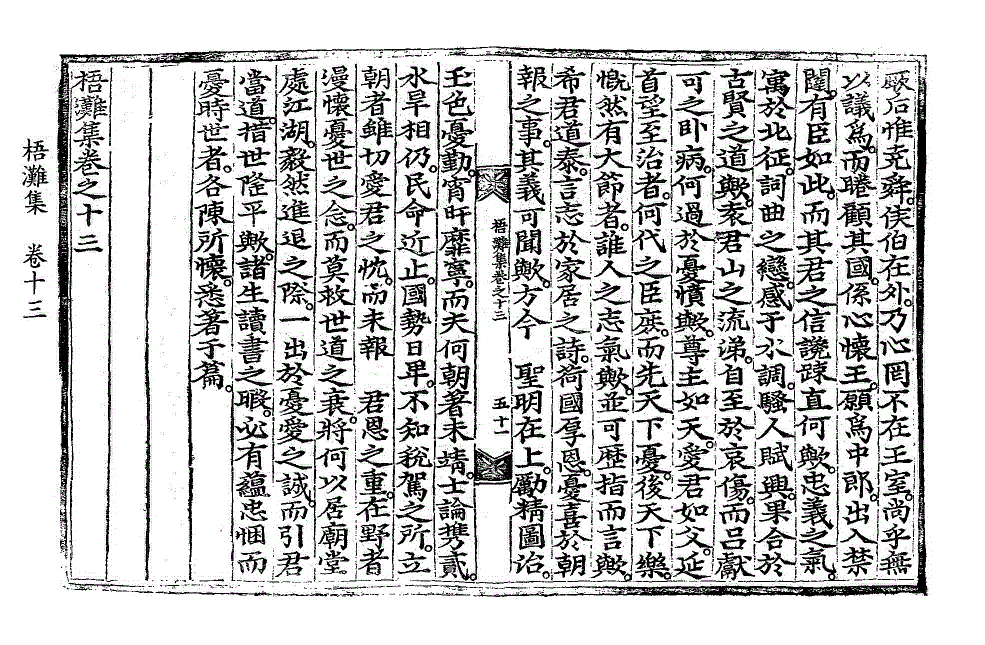 厥后惟克辞侯伯在外。乃心罔不在王室。尚乎無
以議爲。而睠顧其國。係心懷王。願爲中郎。出入禁
闥。有臣如此。而其君之信讒疎直何歟。忠義之氣。
寓於北征。詞曲之戀。感于水調。騷人賦興。果合於
古賢之道歟。袁君山之流涕。自至於哀傷。而呂獻
可之卧病。何過於憂憤歟。尊主如天。愛君如父。延
首望至治者。何代之臣庶。而先天下憂。後天下樂。
慨然有大節者。誰人之志氣歟。並可歷指而言歟。
希君道泰。言志於家居之詩。荷國厚恩。憂喜於朝
報之事。其義可聞歟。方今 聖明在上。勵精圖治。
梧灘集卷之十三 五十一
玉色憂勤。宵旰靡寧。而夫何朝著未靖。士論携貳。
水旱相仍。民命近止。國勢日卑。不知稅駕之所。立
朝者雖切愛君之忱。而未報 君恩之重。在野者
漫懷憂世之念。而莫救世道之衰。將何以居廟堂
處江湖。毅然進退之際。一出於憂愛之誠。而引君
當道。措世隆平歟。諸生讀書之暇。必有蘊忠悃而
憂時世者。各陳所懷。悉著于篇。
梧灘集卷之十三
梧灘集 卷十三